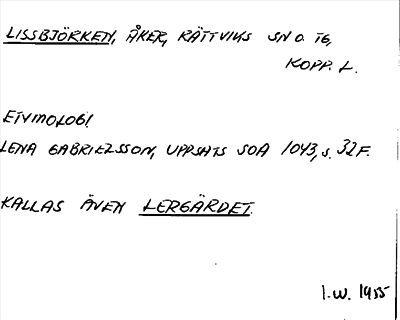 LISSBJÖRKEN, ÅKER, RÄTTVIKS SN O. TG,
KOPP. L.
ETYMOLOGI.
LENA GABRIELSSON, UPPSATS SOA 1043, s. 32 F.
KALLAS ÄVEN LERGÄRDET.
I.W. 1955